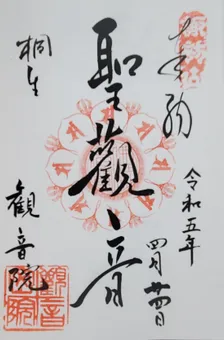 奉拝
令和五年
四月廿四日
聖観音
桐生
観音院